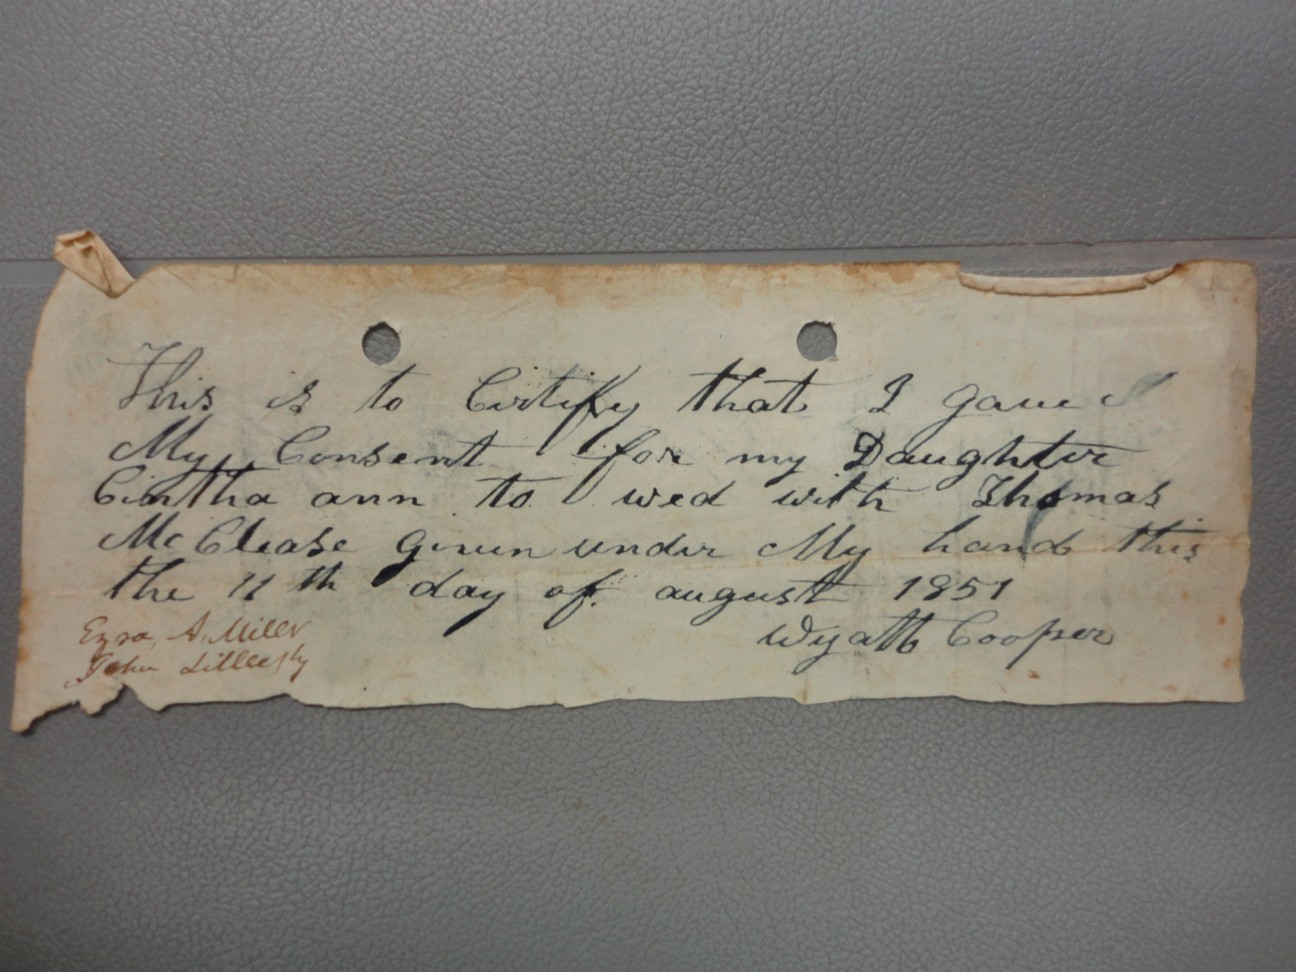 This is to Certify that I gave
My Consent for my Daughter
Cintha ann to wed with Thomas
McClease given under My hand this
the 11th day of august 1851
Wyatt Cooper
Ezra A. Miller
John